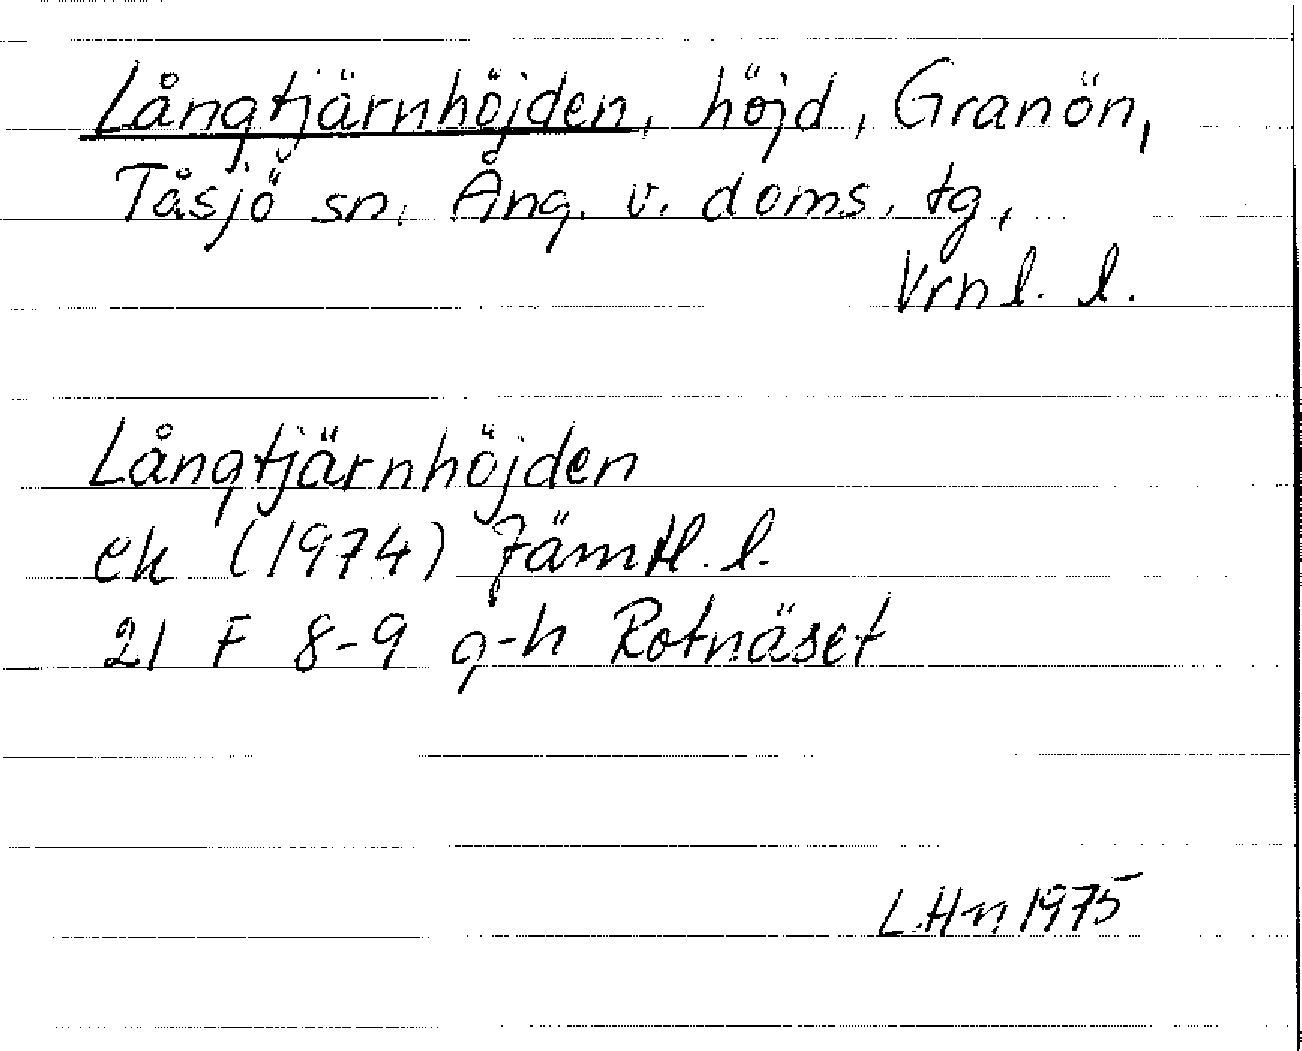 Långtjärnhöjden, höjd, Granön,
Tåsjö sn, Ång. v. doms. tg,
Vrnl. l.
Långtjärnhöjden
ek (1974) Jämtl. l.
21 F 8-9 g-h Rotnäset
L.Hn 1975